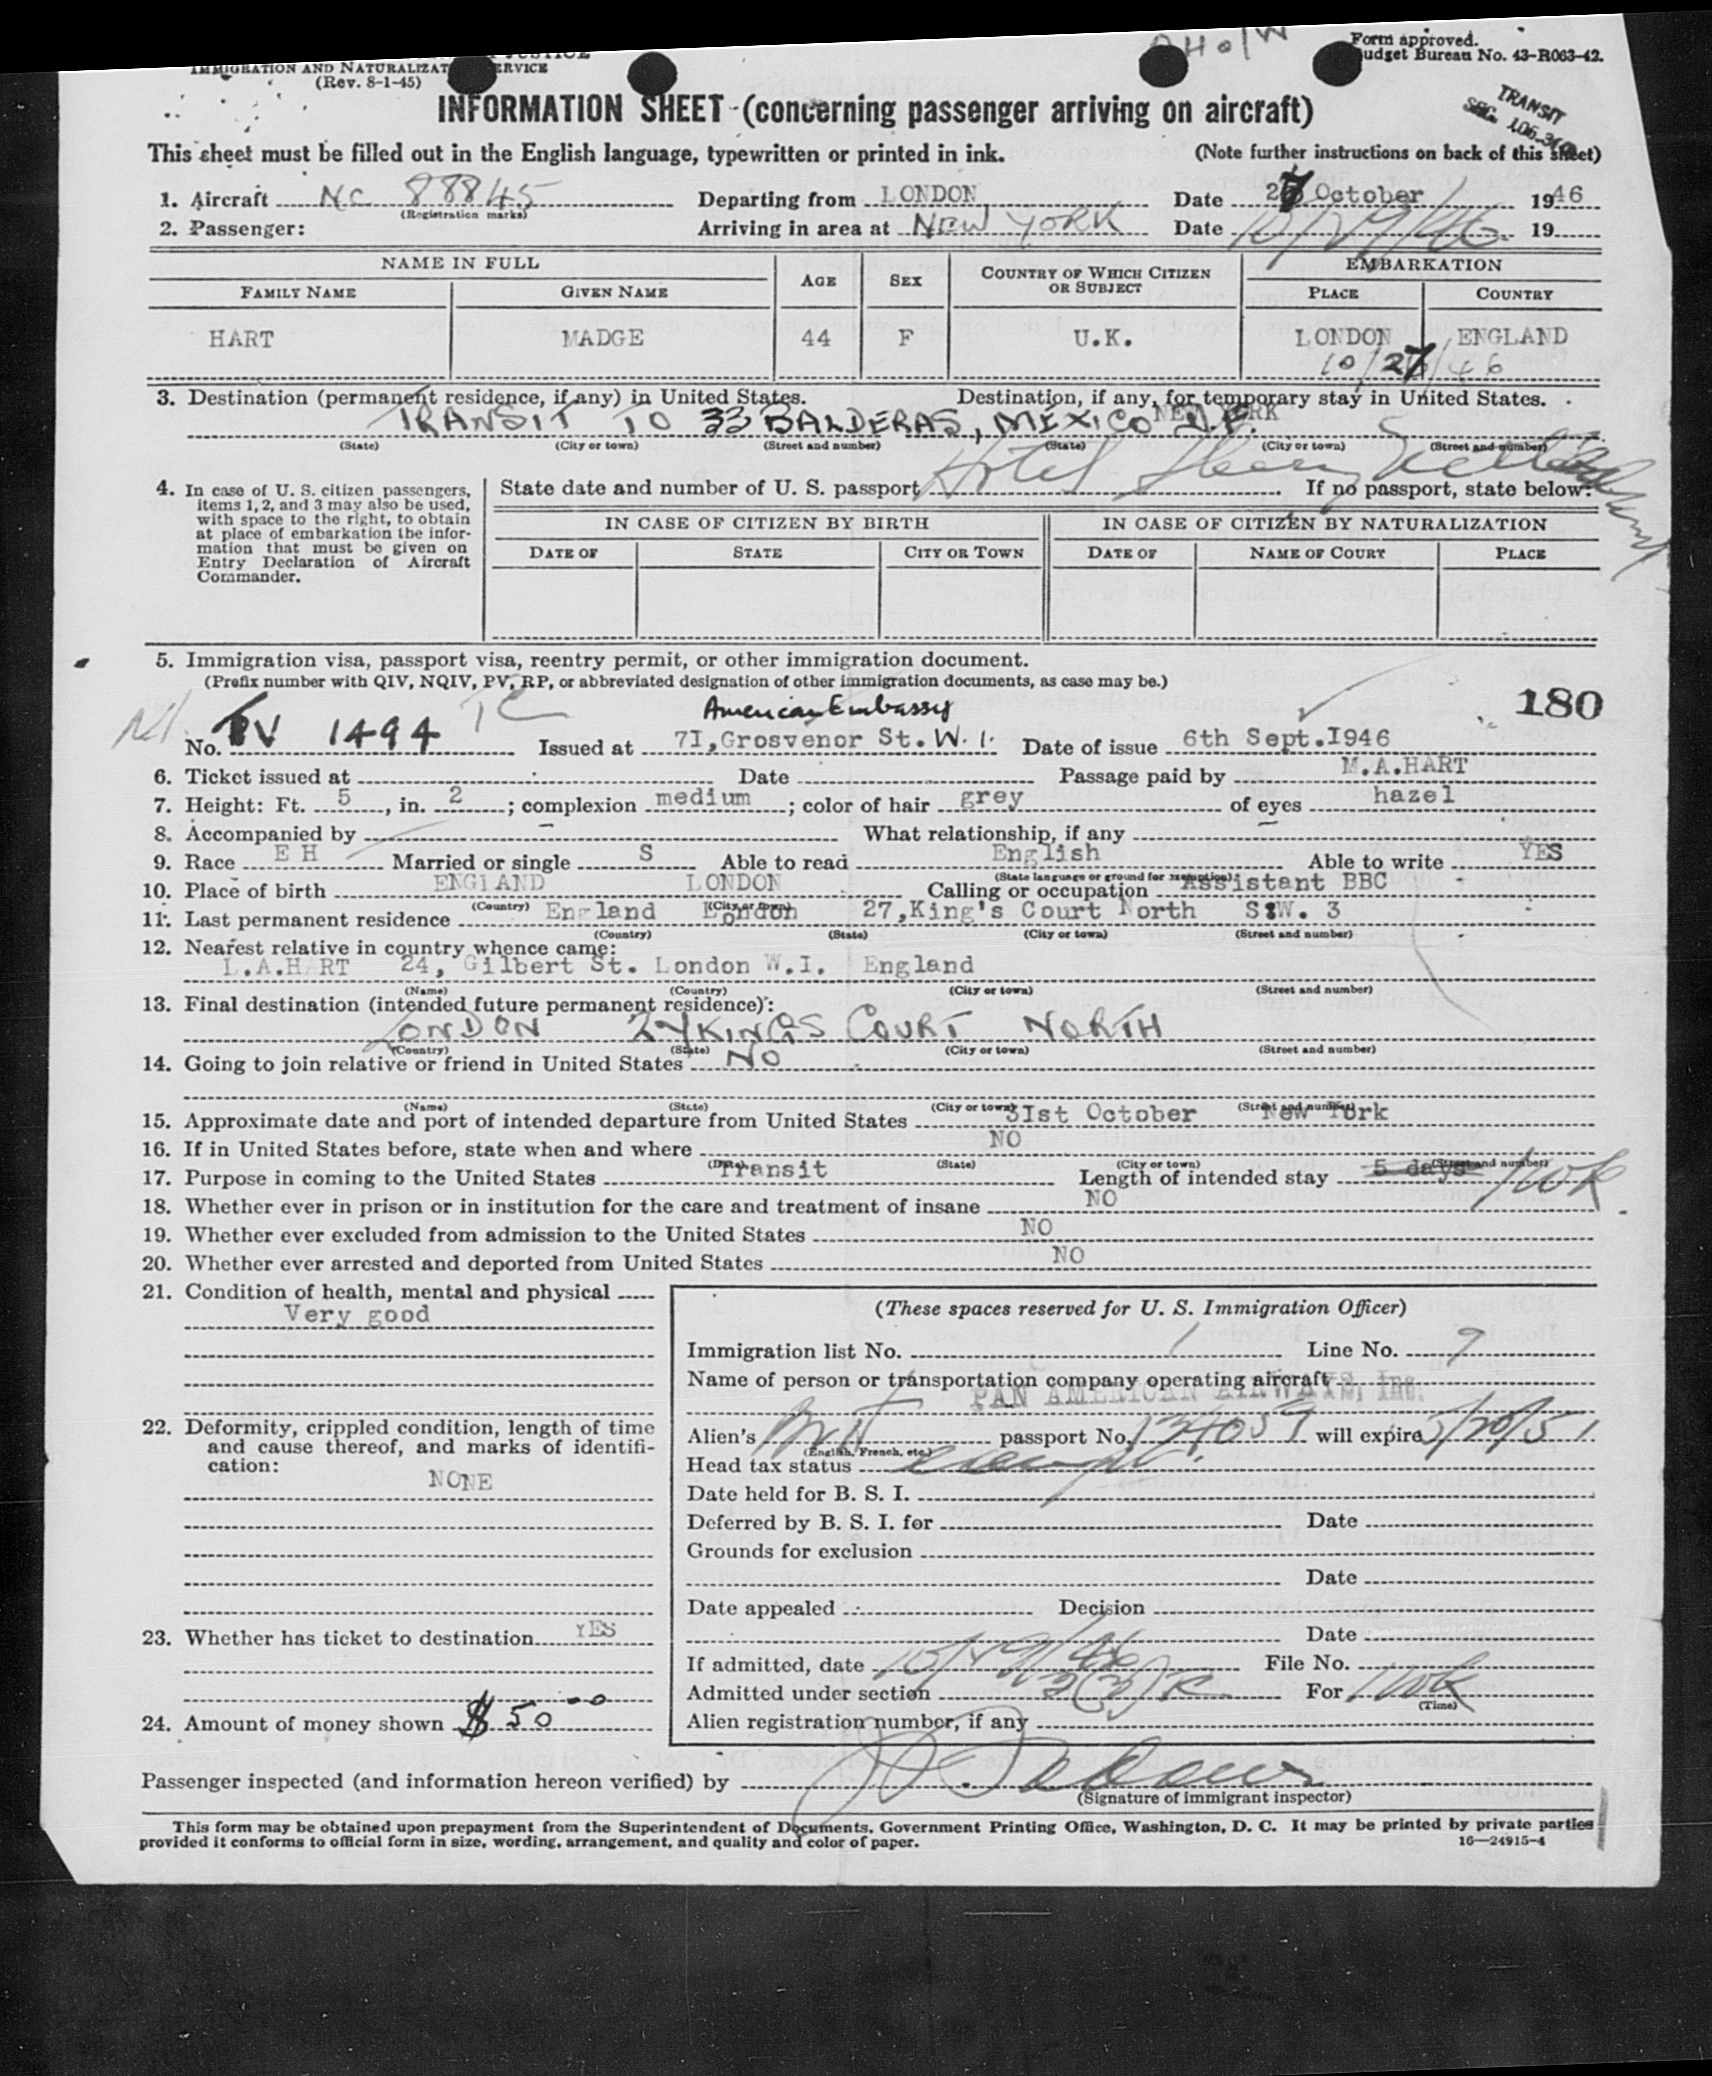 IMMIGRATION AND NATURALIZAT ERVICE
(Rev. 8-1-45)
Form approved.
udget Bureau No. 43-R063-42.
INFORMATION SHEET (concerning passenger arriving on aircraft)
TRANSIT
SEC.
This sheet must be filled out in the English language, typewritten or printed in ink.
(Note further instructions on back of this sheet)
1. Aircraft NC 88845 Departing from LONDON Date 27 October 1946
(Registration marks)
2. Passenger: Arriving in area at NEW YORK Date 10/27/46 19
NAME IN FULL AGE SEX COUNTRY OF WHICH CITIZEN OR SUBJECT EMBARKATION
FAMILY NAME GIVEN NAME PLACE COUNTRY
HART MADGE 44 F U.K. LONDON ENGLAND
10/27/46
3. Destination (permanent residence, if any) in United States. Destination, if any, for temporary stay in United States.
NEW YORK
TRANSIT TO 33 BALDERAS, MEXICO D.F.
(State) (City or town) (Street and number) (State) (City or town) (Street and number)
Hotel
4. In case of U. S. citizen passengers, items 1, 2, and 3 may also be used, with space to the right, to obtain at place of embarkation the information that must be given on Entry Declaration of Aircraft Commander.
State date and number of U. S. passport If no passport, state below:
IN CASE OF CITIZEN BY BIRTH IN CASE OF CITIZEN BY NATURALIZATION
DATE OF STATE CITY OR TOWN DATE OF NAME OF COURT PLACE
5. Immigration visa, passport visa, reentry permit, or other immigration document.
(Prefix number with QIV, NQIV, PV, RP, or abbreviated designation of other immigration documents, as case may be.)
180
American Embassy
No. TV 1494 TC Issued at 71, Grosvenor St. W.1. Date of issue 6th Sept. 1946
6. Ticket issued at Date Passage paid by M.A.HART
7. Height: Ft. 5, in. 2; complexion medium; color of hair grey of eyes hazel
8. Accompanied by — What relationship, if any —
9. Race E H Married or single S Able to read English Able to write YES
(State language or ground for exemption)
10. Place of birth ENGLAND LONDON Calling or occupation Assistant BBC
(Country) (City or town)
11. Last permanent residence England London 27, King's Court North S.W. 3
(Country) (State) (City or town) (Street and number)
12. Nearest relative in country whence came:
L.A.HART 24, Gilbert St. London W.I. England
(Name) (Country) (City or town) (Street and number)
13. Final destination (intended future permanent residence):
LONDON 27 KINGS COURT NORTH
(Country) (State) (City or town) (Street and number)
14. Going to join relative or friend in United States NO
(Name) (State) (City or town) (Street and number)
15. Approximate date and port of intended departure from United States 31st October New York
16. If in United States before, state when and where NO
(Date) (State) (City or town) (Street and number)
17. Purpose in coming to the United States Transit Length of intended stay 5 days 1 wk
18. Whether ever in prison or in institution for the care and treatment of insane NO
19. Whether ever excluded from admission to the United States NO
20. Whether ever arrested and deported from United States NO
21. Condition of health, mental and physical
Very good
22. Deformity, crippled condition, length of time and cause thereof, and marks of identification:
NONE
23. Whether has ticket to destination YES
24. Amount of money shown $ 50 -0
(These spaces reserved for U. S. Immigration Officer)
Immigration list No. 1 Line No. 9
Name of person or transportation company operating aircraft
PAN AMERICAN AIRWAYS, Inc.
Alien's Brit passport No. 134059 will expire 5/20/51
(English, French, etc.)
Head tax status exempt
Date held for B. S. I.
Deferred by B. S. I. for Date
Grounds for exclusion
Date
Date appealed Decision
Date
If admitted, date File No.
Admitted under section 3(3) For 1 wk
(Time)
Alien registration number, if any
Passenger inspected (and information hereon verified) by
(Signature of immigrant inspector)
This form may be obtained upon prepayment from the Superintendent of Documents, Government Printing Office, Washington, D. C. It may be printed by private parties
provided it conforms to official form in size, wording, arrangement, and quality and color of paper.
16—24915-4